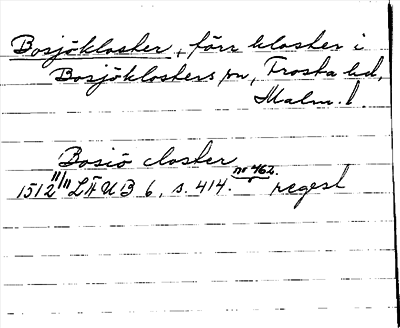 Bosjökloster, förr kloster i
Bosjöklosters sn, Frosta hd,
Malm. l
Bosiö closter
1512 11/11 LÄUB 6, s. 414. nr 462. regest